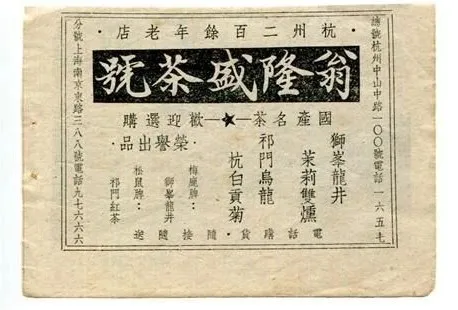 ·杭州二百餘年老店·
翁隆盛茶號
總號杭州中山中路一〇〇號電話一六五七
國產名茶—★—歡迎選購
獅峯龍井
茉莉雙燻
祁門烏龍
杭白貢菊
·榮譽出品·
梅鹿牌：
獅峯龍井
松鼠牌：
祁門紅茶
電話購貨·隨接隨送
分號上海南京東路三八八號電話九七六六六